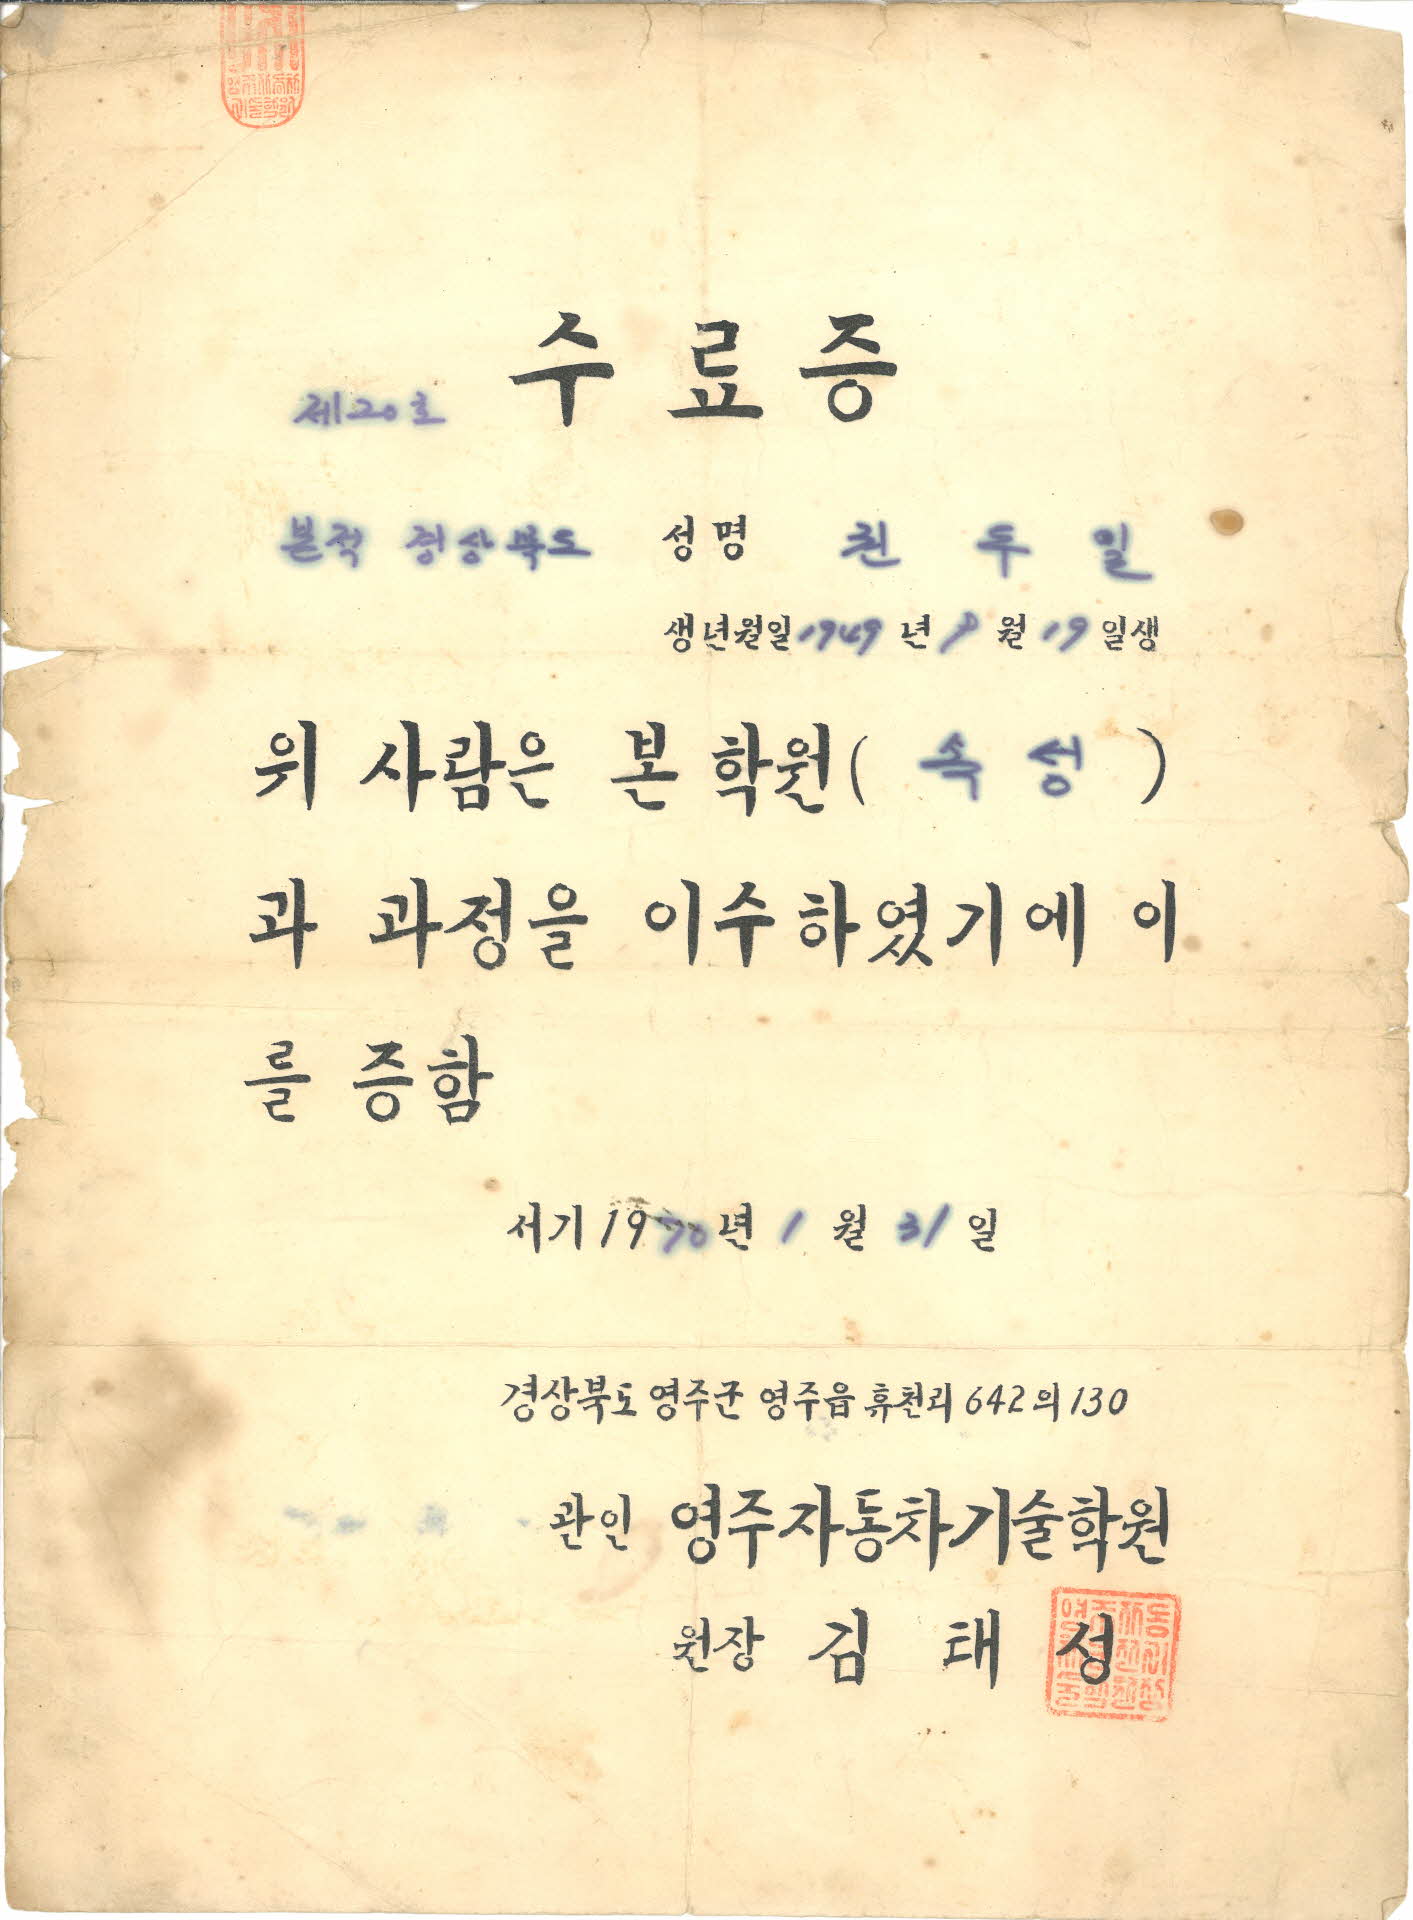 수료증
제20호
본적 경상북도 성명 권두일
생년월일 1949년 8월 19일생
위 사람은 본 학원( 속성 )
과 과정을 이수하였기에 이
를 증함
서기 1970년 1월 31일
경상북도 영주군 영주읍 휴천리 642의 130
관인 영주자동차기술학원
원장 김태성